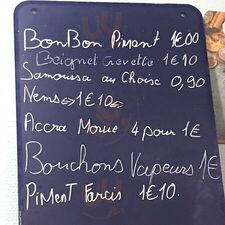 BonBon Piment 1€00
Beignet Crevette 1€10
Samoussa au Choix 0,90
Nems 1€10
Accra Morue 4 pour 1€
Bouchons Vapeurs 1€
PiMenT Farcis 1€10.